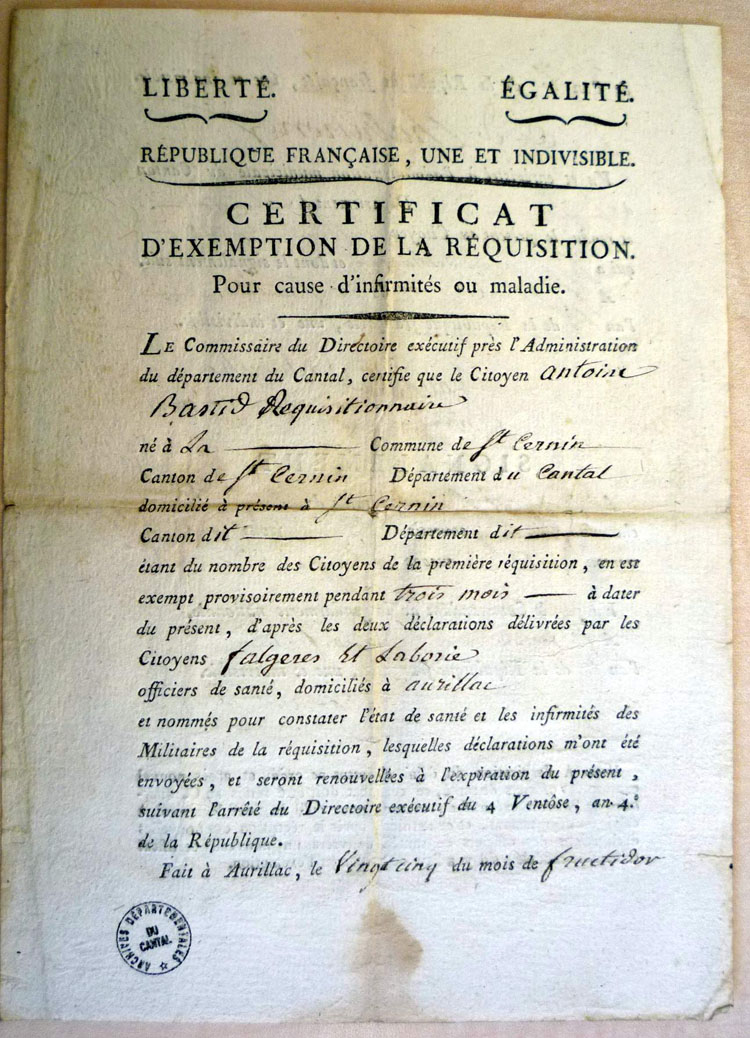 LIBERTÉ. ÉGALITÉ.
RÉPUBLIQUE FRANÇAISE, UNE ET INDIVISIBLE.
CERTIFICAT
D'EXEMPTION DE LA RÉQUISITION.
Pour cause d'infirmités ou maladie.
LE Commissaire du Directoire exécutif près l'Administration
du département du Cantal, certifie que le Citoyen antoine
Bastid Requisitionnaire
né à La Commune de St Cernin
Canton de St Cernin Département du Cantal
domicilié à présent à St Cernin
Canton dit Département dit
étant du nombre des Citoyens de la première réquisition, en est
exempt provisoirement pendant trois mois à dater
du présent, d'après les deux déclarations délivrées par les
Citoyens falgeres Et Laborie
officiers de santé, domiciliés à aurillac
et nommés pour constater l'état de santé et les infirmités des
Militaires de la réquisition, lesquelles déclarations m'ont été
envoyées, et seront renouvellées à l'expiration du présent,
suivant l'arrêté du Directoire exécutif du 4 Ventôse, an 4.e
de la République.
Fait à Aurillac, le Vingt cinq du mois de fructidor
ARCHIVES DÉPARTEMENTALES
DU
CANTAL